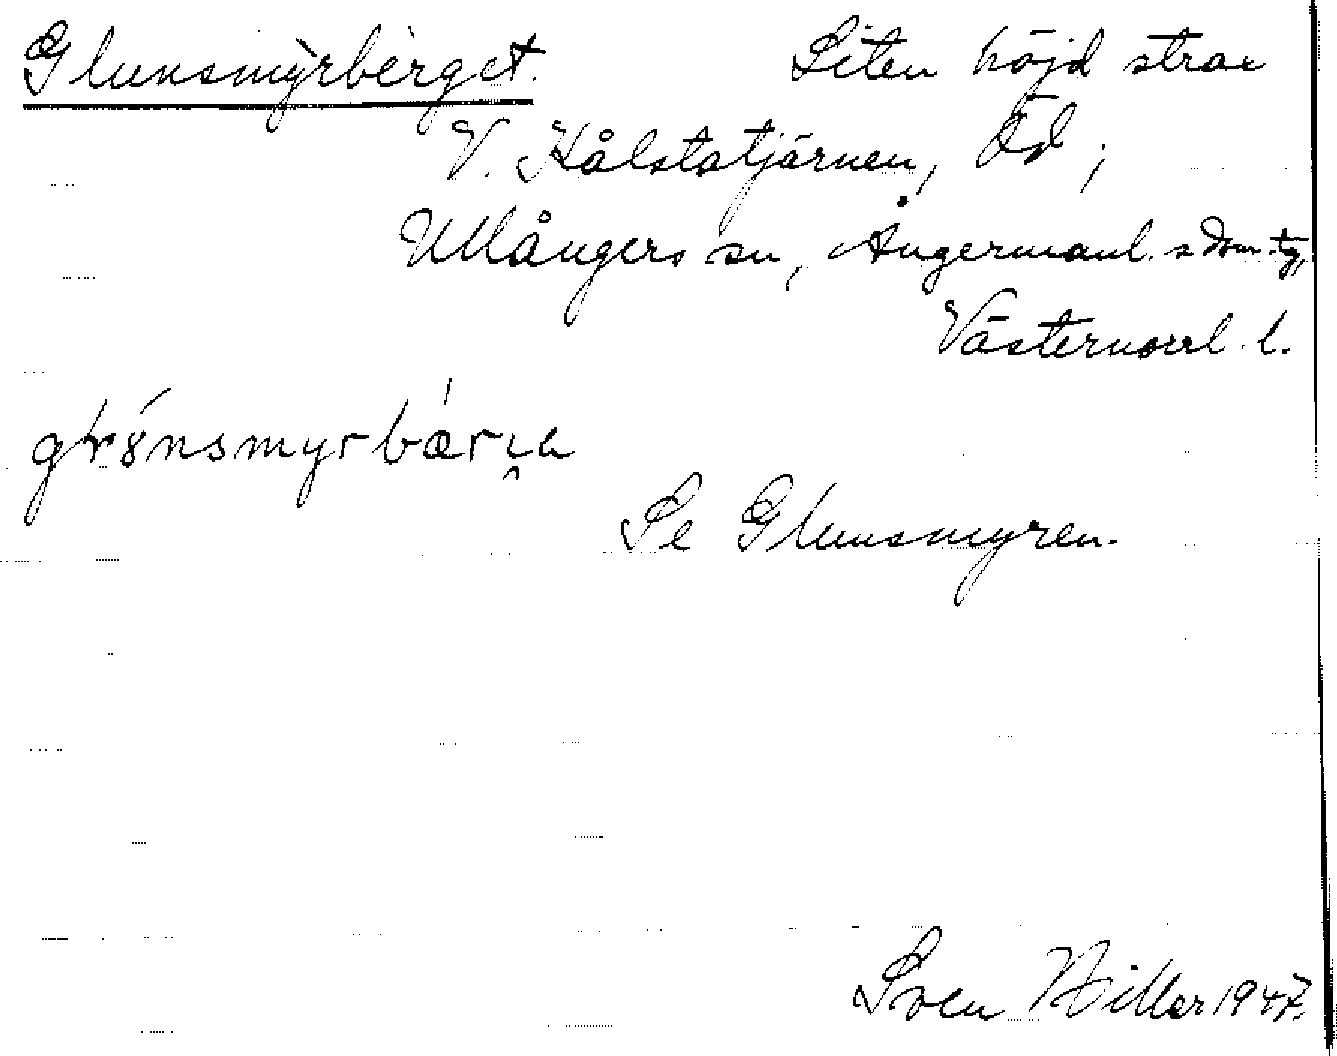 Glunsmyrberget. Liten höjd strax
V. Hålstatjärnen, Öd,
Ullångers sn, Ångermanl. s doms tg,
Västernorrl. l.
Se Glunsmyren.
Sven Hiller 1947.